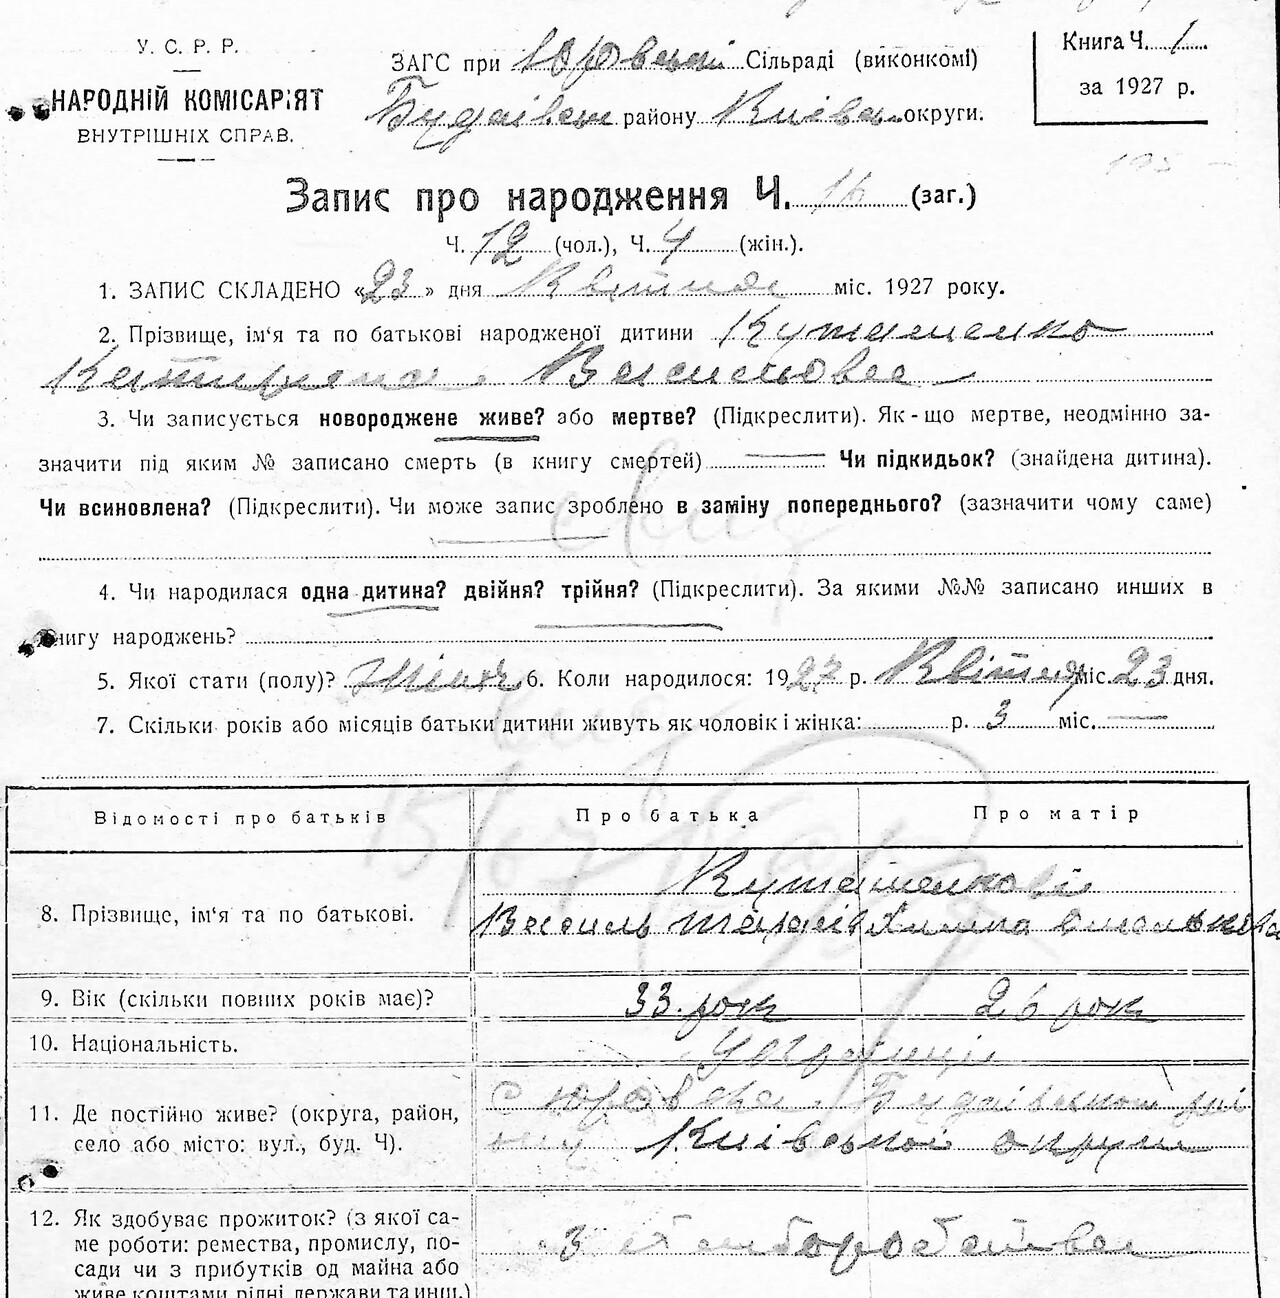 У. С. Р. Р.
НАРОДНІЙ КОМІСАРІЯТ
ВНУТРІШНІХ СПРАВ.
ЗАГС при Юровській Сільраді (виконкомі)
Будаївськ району Київськ округи.
Книга Ч. 1.
за 1927 р.
Запис про народження Ч. 16 (заг.)
Ч. 12 (чол.), Ч. 4 (жін.).
1. ЗАПИС СКЛАДЕНО «23» дня Квітня міс. 1927 року.
2. Прізвище, ім‘я та по батькові народженої дитини Куташенко
Катирина Васильовна
3. Чи записується новороджене живе? або мертве? (Підкреслити). Як-що мертве, неодмінно за-
значити під яким № записано смерть (в книгу смертей) Чи підкидьок? (знайдена дитина).
Чи всиновлена? (Підкреслити). Чи може запис зроблено в заміну попереднього? (зазначити чому саме)
4. Чи народилася одна дитина? двійня? трійня? (Підкреслити). За якими №№ записано инших в
книгу народжень?
5. Якої стати (полу)? Жіноч 6. Коли народилося: 1927 р. Квітня міс. 23 дня.
7. Скільки років або місяців батьки дитини живуть як чоловік і жінка: р. 3 міс. —
Відомості про батьків Про батька Про матір
Куташенкові
8. Прізвище, ім‘я та по батькові. Василь Тарасів
9. Вік (скільки повних років має)? 33. рок 26 рок
10. Національність. Українці
с Юровка Будаївського рай
11. Де постійно живе? (округа, район,
село або місто: вул., буд. Ч). ону Київської округи
12. Як здобуває прожиток? (з якої са-
ме роботи: ремества, промислу, по- З хліборобства
сади чи з прибутків од майна або
живе коштами рідні, держави та инш.)